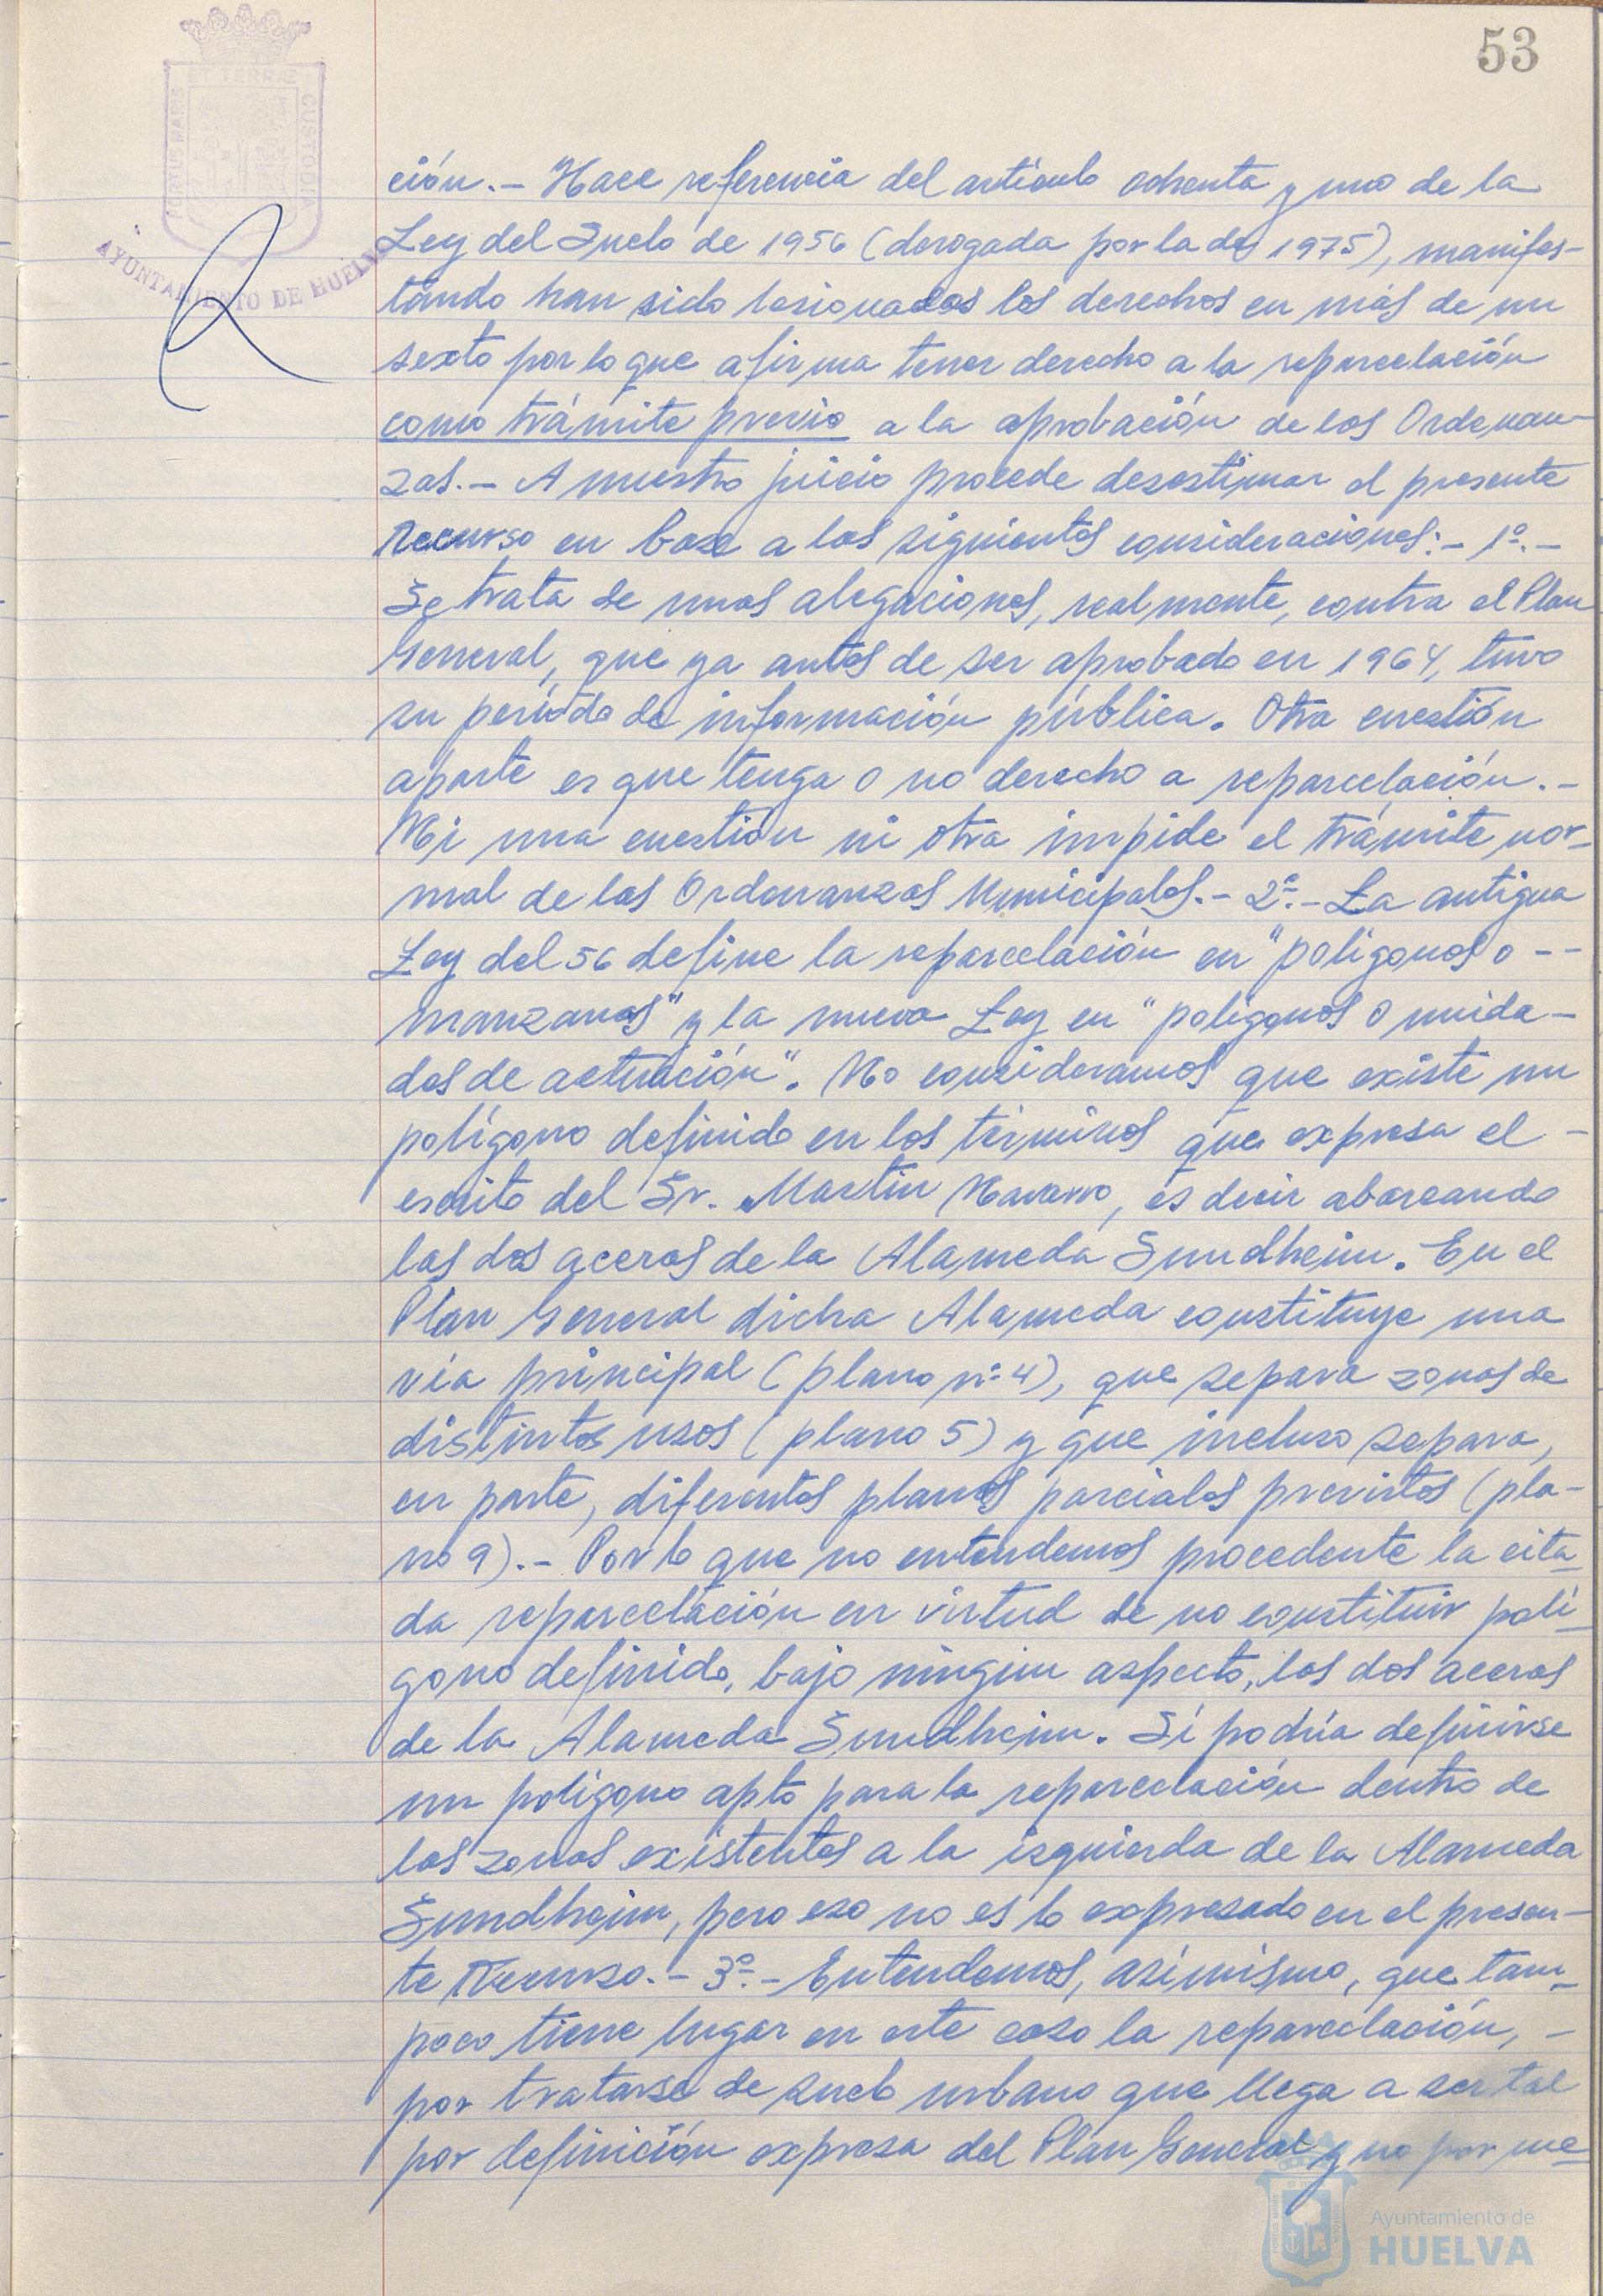 53
ET TERRÆ
PORTUS MARIS
CUSTODIA
AYUNTAMIENTO DE HUELVA
ción.- Hace referencia del artículo ochenta y uno de la
Ley del Suelo de 1956 (derogada por la de 1975), manifes-
tando han sido lesionados los derechos en más de un
sexto por lo que afirma tener derecho a la reparcelación
como trámite previo a la aprobación de las Ordenan-
zas.- A nuestro juicio procede desestimar el presente
Recurso en base a las siguientes consideraciones:- 1º.-
Se trata de unas alegaciones, realmente, contra el Plan
General, que ya antes de ser aprobado en 1964, tuvo
su período de información pública. Otra cuestión
aparte es que tenga o no derecho a reparcelación.-
Ni una cuestión ni otra impide el trámite nor-
mal de las Ordenanzas Municipales.- 2º.- La antigua
Ley del 56 define la reparcelación en "polígonos o --
manzanas" y la nueva Ley en "polígonos o unida-
des de actuación". No consideramos que existe un
polígono definido en los términos que expresa el -
escrito del Sr. Martin Navarro, es decir abarcando
las dos aceras de la Alameda Sundheim. En el
Plan General dicha Alameda constituye una
vía principal (plano nº 4), que separa zonas de
distintos usos (plano 5) y que incluso separa,
en parte, diferentes planes parciales previstos (pla-
no 9).- Por lo que no entendemos procedente la cita-
da reparcelación en virtud de no constituir polí-
gono definido, bajo ningun aspecto, las dos aceras
de la Alameda Sundheim. Sí podría definirse
un polígono apto para la reparcelación dentro de
las zonas existentes a la izquierda de la Alameda
Sundheim, pero eso no es lo expresado en el presen-
te Recurso.- 3º.- Entendemos, asímismo, que tam-
poco tiene lugar en este caso la reparcelación, -
por tratarse de suelo urbano que llega a ser tal
por definición expresa del Plan General y no por me-
Ayuntamiento de
HUELVA